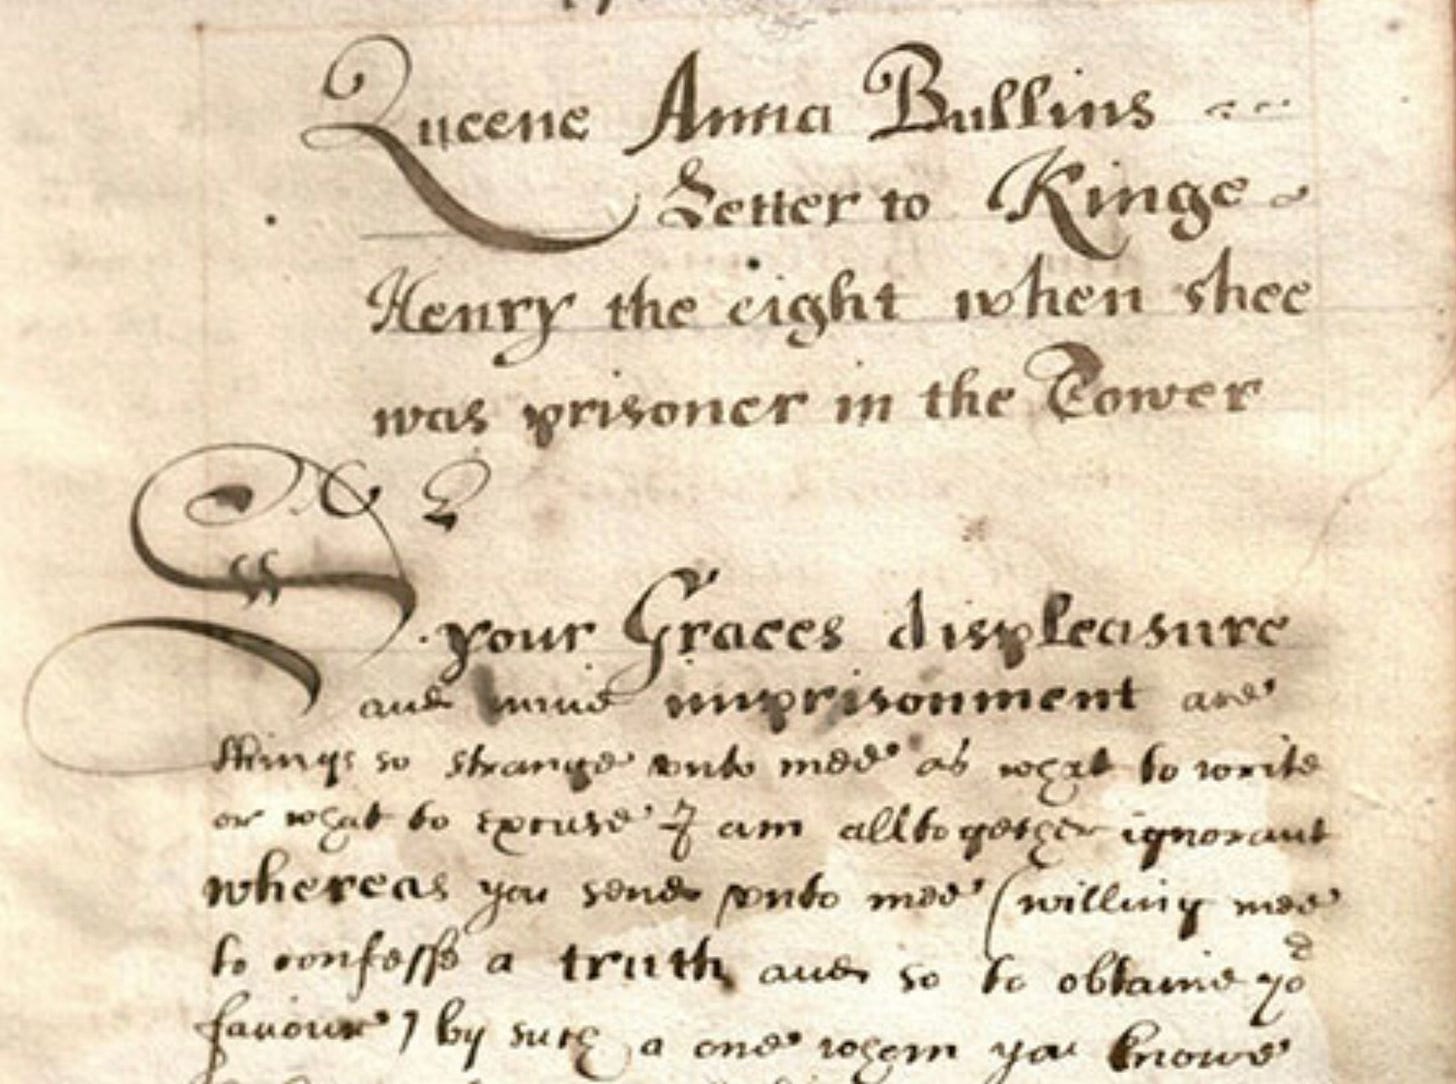 Queene Anna Bullins
Letter to Kinge
Henry the eight when shee
was prisoner in the Tower
Sr
your Graces displeasure
and mine imprisonment are
things so strange vnto mee as what to write
or what to excuse I am alltogether ignorant
whereas you send vnto mee (willing mee
to confesse a truth and so to obtaine yor
fauour) by such a one whom you knowe